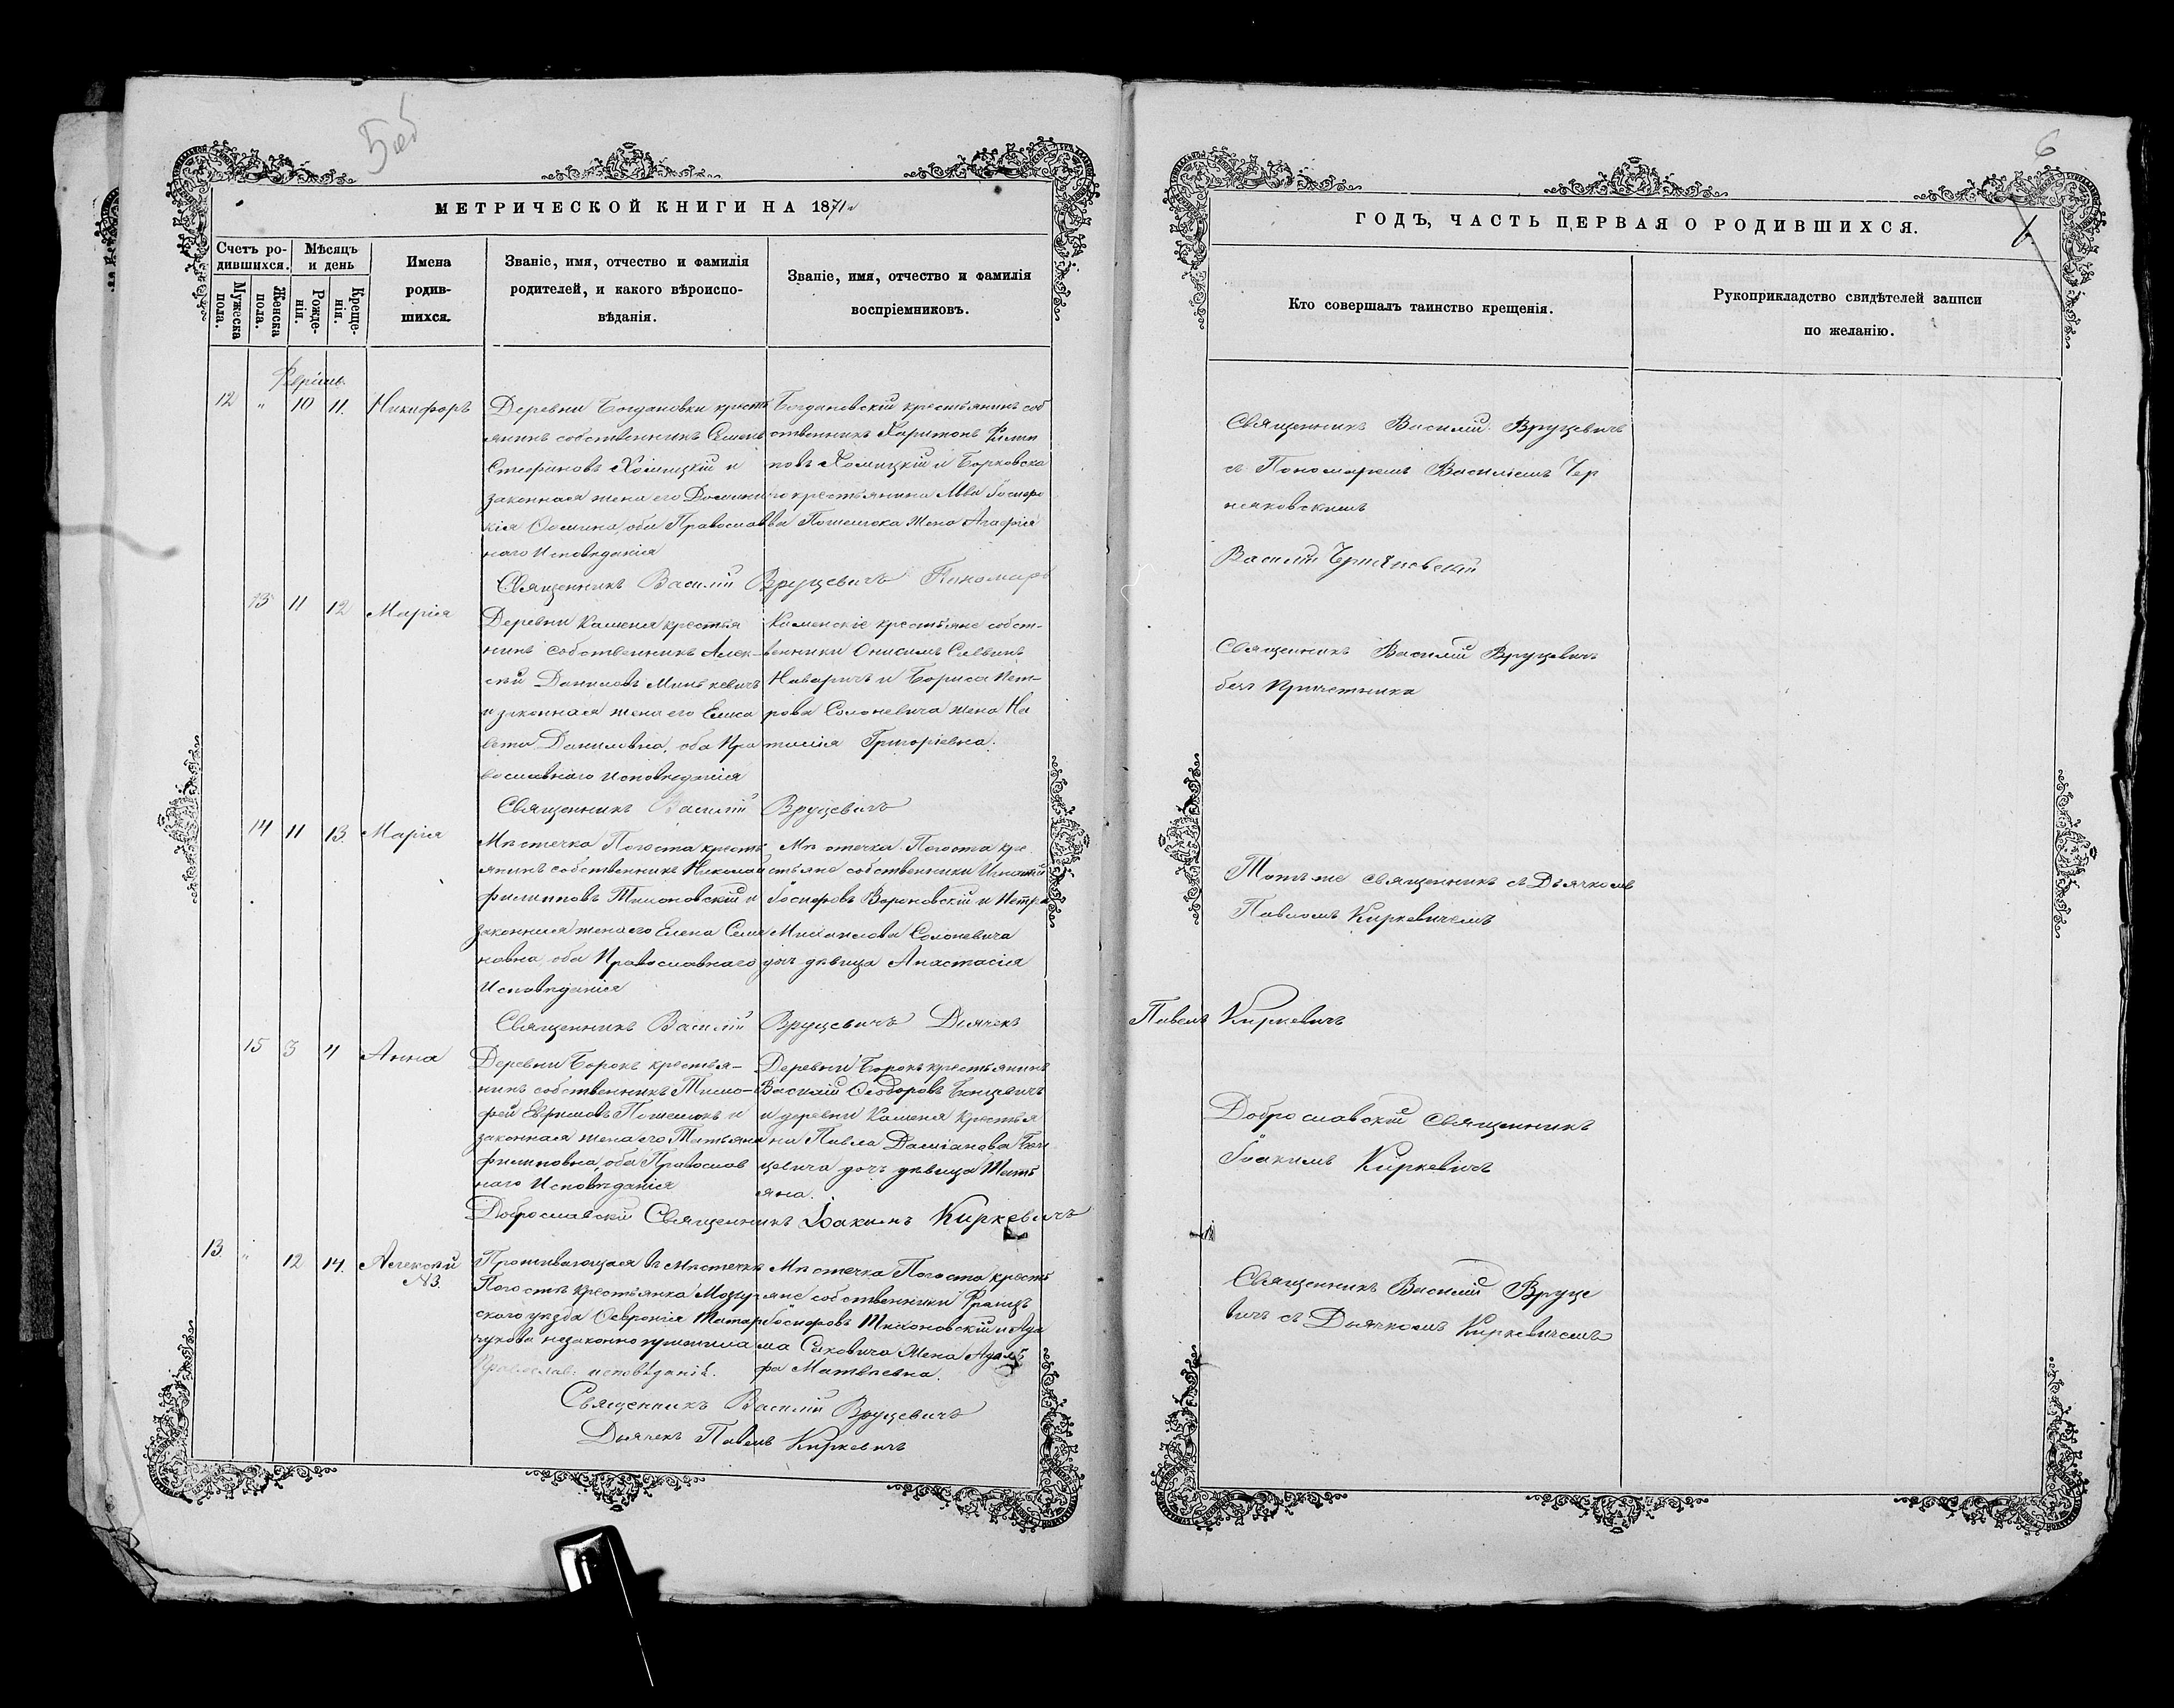 5 об
6
МЕТРИЧЕСКОЙ КНИГИ НА 1871й
Счетъ ро-
дившихся.
Мужеска
пола.
Женска
пола.
Мѣсяцъ
и день
Рожде-
нія.
Креще-
нія.
Имена
родив-
шихся.
Званіе, имя, отчество и фамилія
родителей, и какого вѣроиспо-
вѣданія.
Званіе, имя, отчество и фамилія
воспріемниковъ.
12 " 10 11. Никифоръ
Деревни Богдановки кресть
янинъ собственникъ Семенъ
Стефановъ Хомицкій и
законная жена его Домини
кія Ѳомина, оба Православ
наго Исповѣданія
Богдановскій крестьянинъ соб
ственникъ Харитонъ Филип
повъ Хомицкій и Борковска
го крестьянина Льва Іосифо
ва Полешока жена Агафія
Священникъ Василій Вруцевичъ Пономарь
13 11 12 Марія
Деревни Каменя крестья
нинъ собственникъ Алек-
сѣй Даниловъ Минькевичъ
и законная жена его Елиса
вета Данилова, оба Пра
вославнаго Исповѣданія
Каменскіе крестьяне собст-
венники Онисимъ Саввинъ
Наваричъ и Бориса Пет-
рова Солоневича жена На
талія Григоріевна.
Священникъ Василій Вруцевичъ
14 11 13. Марія
Мѣстечка Погоста кресть
янинъ собственникъ Николай
Филипповъ Тихоновскій и
законная жена его Елена Семе
новна, оба Православнаго
Исповѣданія
Мѣстечка Погоста кре
стьяне собственники Игнатій
Іосифовъ Вороновскій и Петра
Михаилова Солоневича
дочь дѣвица Анастасія
Священникъ Василій Вруцевичъ Дьячекъ
15 3 4 Анна
Деревни Борокъ крестья-
нинъ собственникъ Тимо-
фей Евфимовъ Полешокъ и
законная жена его Татьяна
Филиповна, оба Православ
наго Исповѣданія
Деревни Борокъ крестьянинъ
Василій Ѳеодоровъ Бенцевичъ
и деревни Каменя крестья
нина Павла Даміанова Бен
цевича дочь дѣвица Тать
яна.
Доброславскій Священникъ Іоакимъ Киркевичъ
13. " 12 14. Алексѣй
№3.
Проживающая въ мѣстечкѣ
Погостѣ крестьянка Мозыр
скаго уѣзда Ѳевронія Татар
чукова незаконно прижила
Православ: исповѣданія.
Мѣстечка Погоста кресть
яне собственники Францъ
Іосифовъ Тихоновскій и Ада
ма Саковича жена Агаѳ
фа Матвѣевна.
Священникъ Василій Вруцевичъ
Дьячекъ Павелъ Киркевичъ
ГОДЪ, ЧАСТЬ ПЕРВАЯ О РОДИВШИХСЯ.
Кто совершалъ таинство крещенія.
Рукоприкладство свидѣтелей записи
по желанію.
Священникъ Василій Вруцевичъ
съ Пономаремъ Василіемъ Чер
няковскимъ
Василій Черняковскій
Священникъ Василій Вруцевичъ
безъ Причетника
Тотъ же священникъ съ Дьячкомъ
Павломъ Киркевичемъ
Павелъ Киркевичъ
Доброславскій священникъ
Іоакимъ Киркевичъ
Священникъ Василій Вруце
вичъ съ Дьячкомъ Киркевичемъ